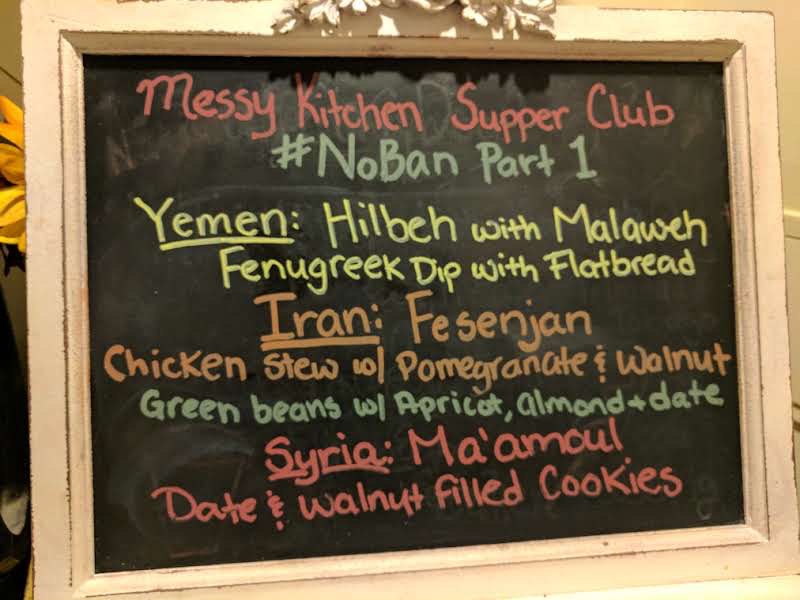 Messy Kitchen Supper Club
#NoBan Part 1
Yemen: Hilbeh with Malaweh
Fenugreek Dip with Flatbread
Iran: Fesenjan
Chicken Stew w/ Pomegranate & Walnut
Green beans w/ Apricot, almond + date
Syria: Ma'amoul
Date & walnut filled Cookies